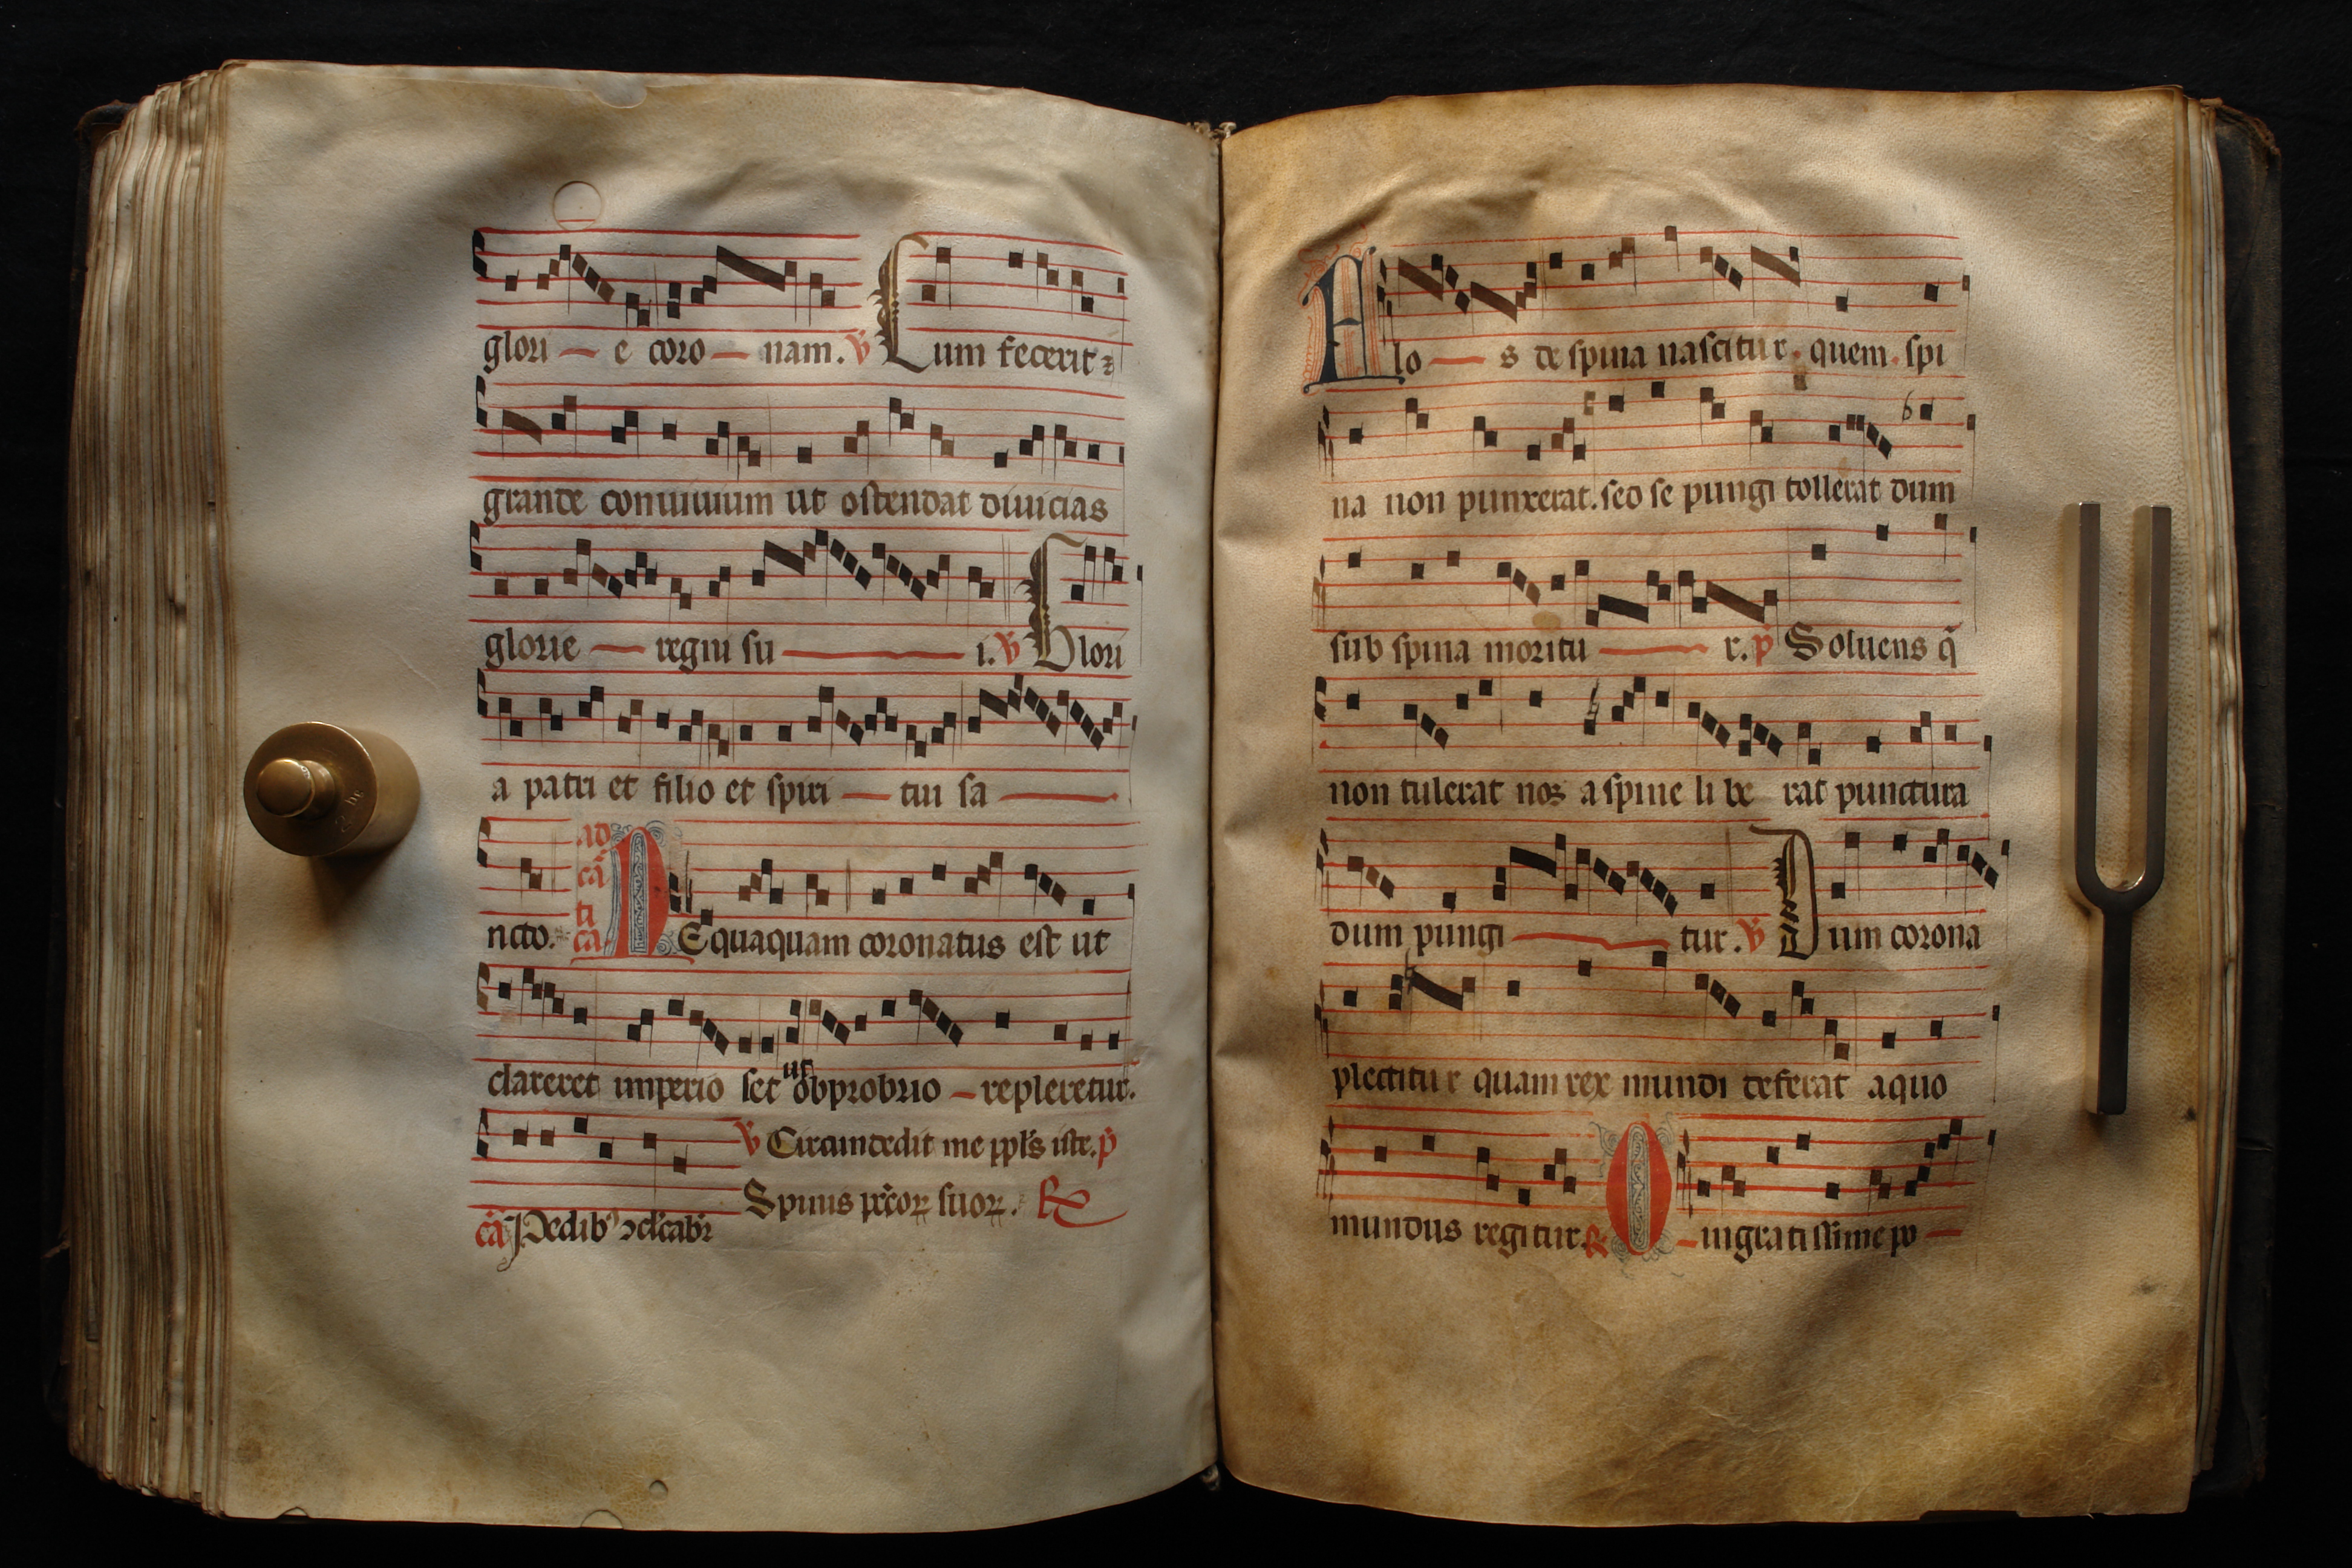 glori — e coro — nam. ℣ Cum fecerit
grande conuiuium ut ostendat diuicias
glorie — regni su — i. ℣ Glori
a patri et filio et spiri — tui sa —
ncto. ad cã ti ca. NEquaquam coronatus est ut
clareret imperio set ut obprobrio — repleretur.
℣ Circumdedit me ppl's iste. p̃
Spinis pc̃coꝝ suoꝝ. ℟
cã
Flo — s de spina nascitur. quem. spi
na non punxerat. sed se pungi tollerat dum
sub spina moritu — r. p̃ Soluens q̃
non tulerat nos a spine li be rat punctura
dum pungi — tur. ℣ Dum corona
plectitur quam rex mundi deferat a quo
mundus regitur. ℟ O — ingratissime po —